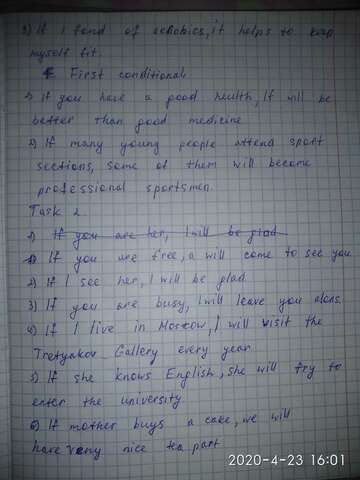 3) If I fond of aerobics, it helps to keep
myself fit.
First conditional
1) if you have a good health, It will be
better than good medicine
2) If many young people attend sport
sections, some of them will become
professional sportsmen.
Task 2.
1) If you are her, I will be glad
1) If you are free, a will come to see you
2) If I see her, I will be glad
3) If you are busy, I will leave you alons.
4) If I live in Moscow, I will visit the
Tretyakov Gallery every year
5) If she knows English, she will try to
enter the university.
6) If mother buys a cake, we will
have very nice tea part
2020-4-23 16:01